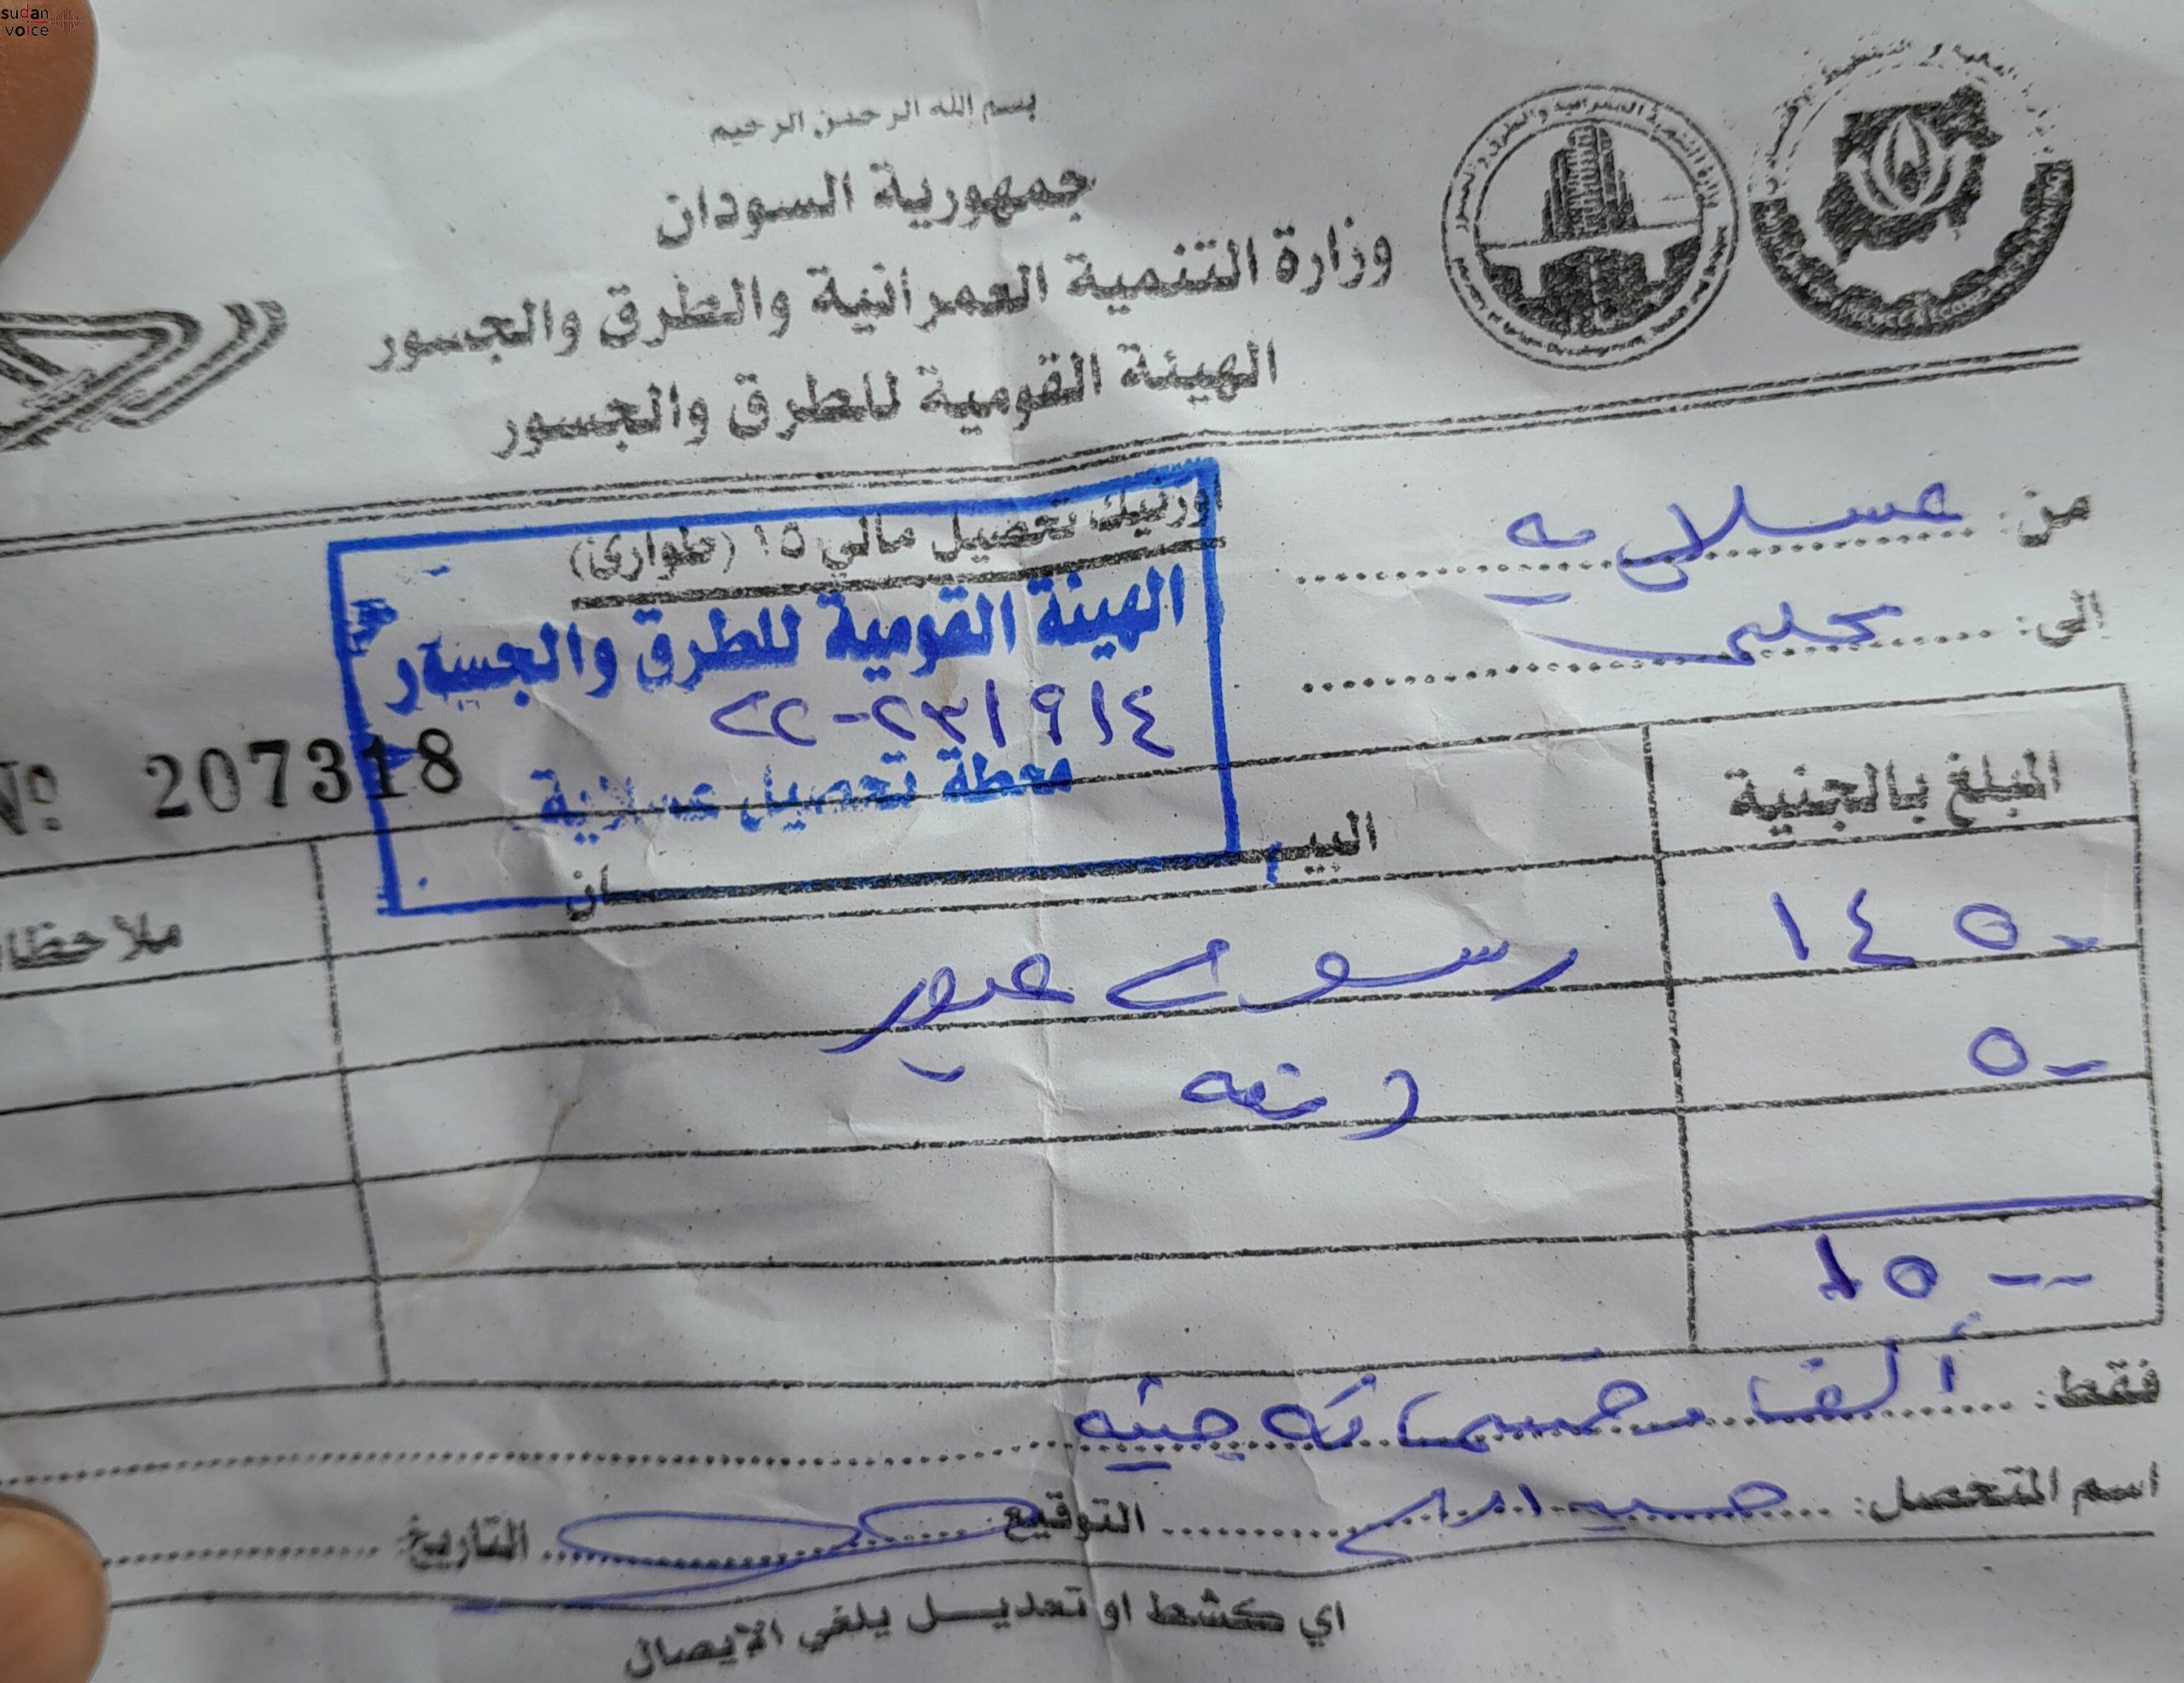 sudan
voice
بسم الله الرحمن الرحيم
جمهورية السودان
وزارة التنمية العمرانية والطرق والجسور
الهيئة القومية للطرق والجسور
اورنيك تحصيل مالي ١٥ (طوارئ)
من: عسلاية
الى: محلي
الهيئة القومية للطرق والجسور
محطة تحصيل عسلاية
Nº 207318
المبلغ بالجنية البيـــــان ملاحظا
١٤٥٠ رسوم عبور
٥٠ دمغه
١٥٠٠
فقط: الف وخمسمائه جنيه
اسم المتحصل: التوقيع التاريخ
اي كشط او تعديــل يلغي الايصال